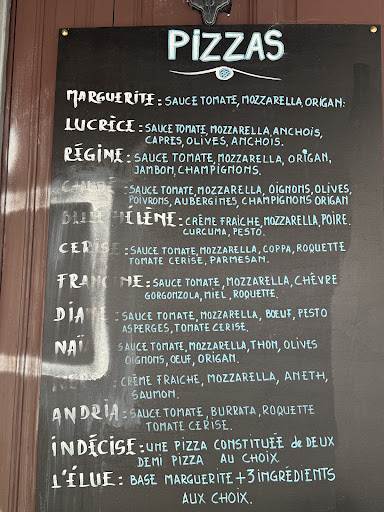 PIZZAS
MARGUERITE : SAUCE TOMATE, MOZZARELLA, ORIGAN.
LUCRÈCE : SAUCE TOMATE, MOZZARELLA, ANCHOIS,
CAPRES, OLIVES, ANCHOIS.
RÉGINE : SAUCE TOMATE, MOZZARELLA, ORIGAN,
JAMBON, CHAMPIGNONS.
SAUCE TOMATE, MOZZARELLA, OIGNONS, OLIVES,
POIVRONS, AUBERGINES, CHAMPIGNONS ORIGAN
BELLE HÉLÈNE : CRÈME FRAICHE, MOZZARELLA, POIRE.
CURCUMA, PESTO.
CERISE : SAUCE TOMATE, MOZZARELLA, COPPA, ROQUETTE
TOMATE CERISE, PARMESAN.
FRANCINE : SAUCE TOMATE, MOZZARELLA, CHÈVRE
GORGONZOLA, MIEL, ROQUETTE.
DIANE : SAUCE TOMATE, MOZZARELLA, BOEUF, PESTO
ASPERGES, TOMATE CERISE.
SAUCE TOMATE, MOZZARELLA, THON, OLIVES
OIGNONS, OEUF, ORIGAN.
CRÈME FRAICHE, MOZZARELLA, ANETH,
SAUMON.
ANDRIA : SAUCE TOMATE, BURRATA, ROQUETTE
TOMATE CERISE.
INDÉCISE : UNE PIZZA CONSTITUÉE de DEUX
DEMI PIZZA AU CHOIX.
L'ÉLUE : BASE MARGUERITE + 3 INGRÉDIENTS
AUX CHOIX.